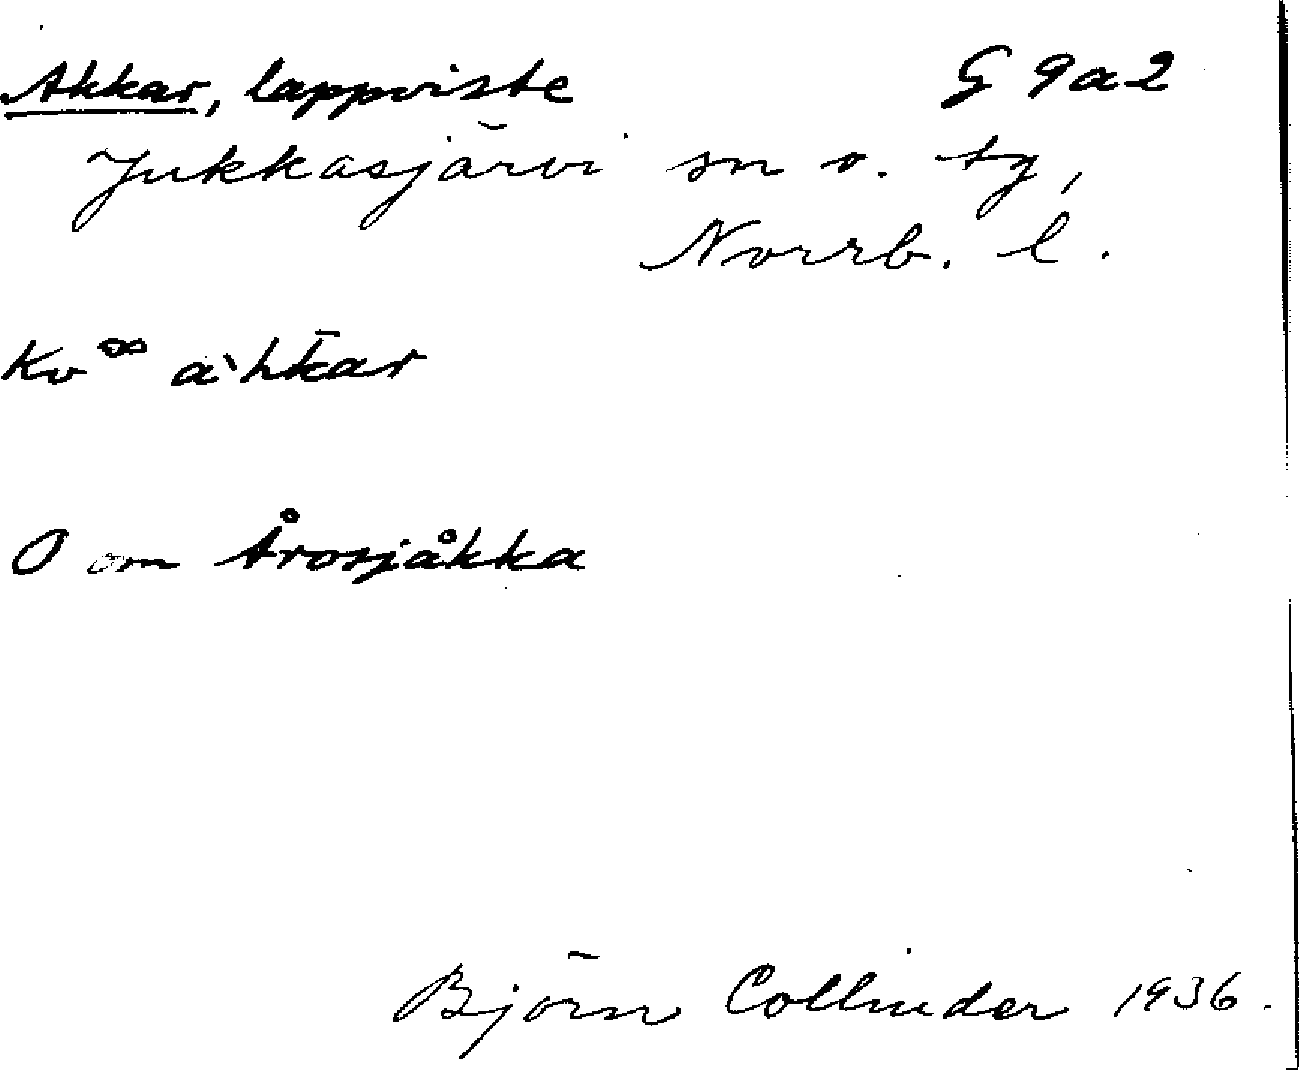 Akkar, lappviste G 9a2
Jukkasjärvi sn o. tg,
Norrb. l.
Kv∞ a`hk̄ar
O om Årosjåkka
Björn Collinder 1936.